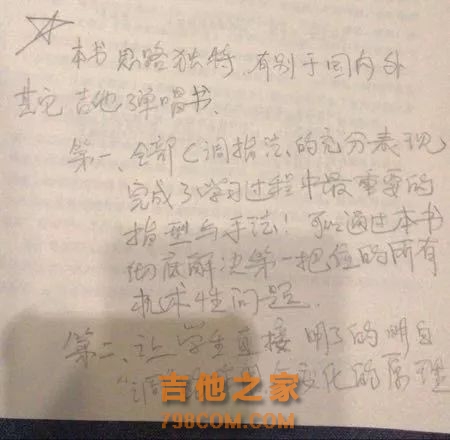 本书思路独特,有别于国内外
其它吉他弹唱书.
第一、全部C调指法的充分表现,
完成了学习过程中最重要的
指型与手法!可以通过本书
彻底解决第一把位的所有
技术性问题.
第二、让学生直接明了的明白
调 变化的原理
吉他之家
798COM.COM